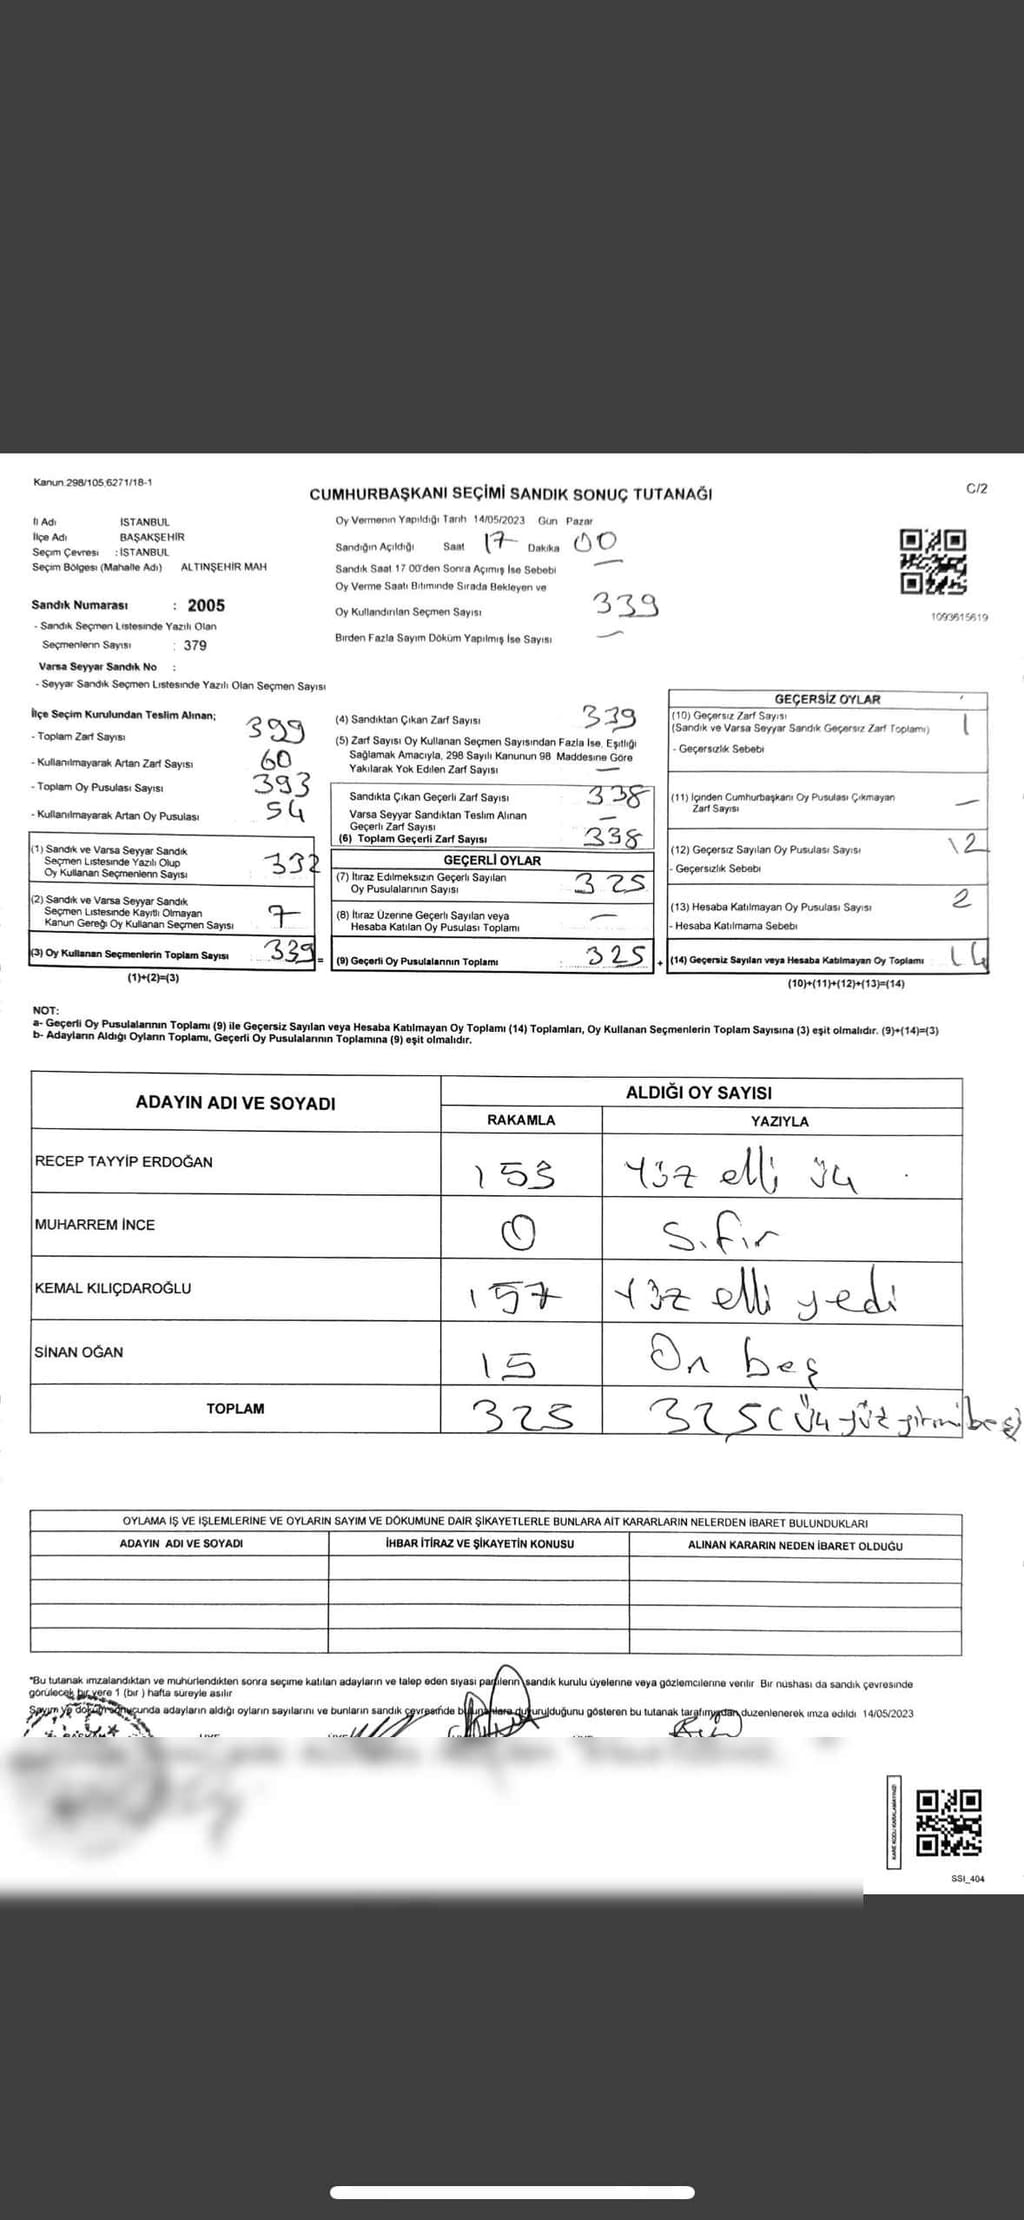 Kanun.298/105,6271/18-1
CUMHURBAŞKANI SEÇİMİ SANDIK SONUÇ TUTANAĞI
C/2
İl Adı İSTANBUL
İlçe Adı BAŞAKŞEHİR
Seçim Çevresi : İSTANBUL
Seçim Bölgesi (Mahalle Adı) ALTINŞEHİR MAH
Sandık Numarası : 2005
- Sandık Seçmen Listesinde Yazılı Olan
Seçmenlerin Sayısı : 379
Varsa Seyyar Sandık No :
- Seyyar Sandık Seçmen Listesinde Yazılı Olan Seçmen Sayısı
Oy Vermenin Yapıldığı Tarih 14/05/2023 Gün Pazar
Sandığın Açıldığı Saat 17 Dakika 00
Sandık Saat 17 00'den Sonra Açımış İse Sebebi —
Oy Verme Saati Bitiminde Sırada Bekleyen ve
Oy Kullandırılan Seçmen Sayısı 339
Birden Fazla Sayım Döküm Yapılmış İse Sayısı —
1093615619
İlçe Seçim Kurulundan Teslim Alınan;
- Toplam Zarf Sayısı 399
- Kullanılmayarak Artan Zarf Sayısı 60
- Toplam Oy Pusulası Sayısı 393
- Kullanılmayarak Artan Oy Pusulası 54
(1) Sandık ve Varsa Seyyar Sandık
Seçmen Listesinde Yazılı Olup
Oy Kullanan Seçmenlerin Sayısı 332
(2) Sandık ve Varsa Seyyar Sandık
Seçmen Listesinde Kayıtlı Olmayan
Kanun Gereği Oy Kullanan Seçmen Sayısı 7
(3) Oy Kullanan Seçmenlerin Toplam Sayısı 339 =
(1)+(2)=(3)
(4) Sandıktan Çıkan Zarf Sayısı 339
(5) Zarf Sayısı Oy Kullanan Seçmen Sayısından Fazla İse, Eşitliği
Sağlamak Amacıyla, 298 Sayılı Kanunun 98 Maddesine Göre
Yakılarak Yok Edilen Zarf Sayısı —
Sandıkta Çıkan Geçerli Zarf Sayısı 338
Varsa Seyyar Sandıktan Teslim Alınan
Geçerli Zarf Sayısı —
(6) Toplam Geçerli Zarf Sayısı 338
GEÇERLİ OYLAR
(7) İtiraz Edilmeksizin Geçerli Sayılan
Oy Pusulalarının Sayısı 325
(8) İtiraz Üzerine Geçerli Sayılan veya
Hesaba Katılan Oy Pusulası Toplamı —
(9) Geçerli Oy Pusulalarının Toplamı : 325 +
GEÇERSİZ OYLAR
(10) Geçersiz Zarf Sayısı 1
(Sandık ve Varsa Seyyar Sandık Geçersiz Zarf Toplamı)
- Geçersizlik Sebebi
(11) İçinden Cumhurbaşkanı Oy Pusulası Çıkmayan
Zarf Sayısı —
(12) Geçersiz Sayılan Oy Pusulası Sayısı 12
- Geçersizlik Sebebi
(13) Hesaba Katılmayan Oy Pusulası Sayısı 2
- Hesaba Katılmama Sebebi
(14) Geçersiz Sayılan veya Hesaba Katılmayan Oy Toplamı : 14
(10)+(11)+(12)+(13)=(14)
NOT:
a- Geçerli Oy Pusulalarının Toplamı (9) ile Geçersiz Sayılan veya Hesaba Katılmayan Oy Toplamı (14) Toplamları, Oy Kullanan Seçmenlerin Toplam Sayısına (3) eşit olmalıdır. (9)+(14)=(3)
b- Adayların Aldığı Oyların Toplamı, Geçerli Oy Pusulalarının Toplamına (9) eşit olmalıdır.
ADAYIN ADI VE SOYADI
ALDIĞI OY SAYISI
RAKAMLA YAZIYLA
RECEP TAYYİP ERDOĞAN 153 Yüz elli üç
MUHARREM İNCE 0 Sıfır
KEMAL KILIÇDAROĞLU 157 Yüz elli yedi
SİNAN OĞAN 15 On beş
TOPLAM 325 325 (Üç yüz yirmi beş)
OYLAMA İŞ VE İŞLEMLERİNE VE OYLARIN SAYIM VE DÖKÜMÜNE DAİR ŞİKAYETLERLE BUNLARA AİT KARARLARIN NELERDEN İBARET BULUNDUKLARI
ADAYIN ADI VE SOYADI İHBAR İTİRAZ VE ŞİKAYETİN KONUSU ALINAN KARARIN NEDEN İBARET OLDUĞU
*Bu tutanak imzalandıktan ve mühürlendikten sonra seçime katılan adayların ve talep eden siyasi partilerin sandık kurulu üyelerine veya gözlemcilerine verilir Bir nüshası da sandık çevresinde
görülecek bir yere 1 (bir) hafta süreyle asılır
Sayım ve döküm sonucunda adayların aldığı oyların sayılarını ve bunların sandık çevresinde bulunanlara duyurulduğunu gösteren bu tutanak tarafımızdan düzenlenerek imza edildi 14/05/2023
SSI_404